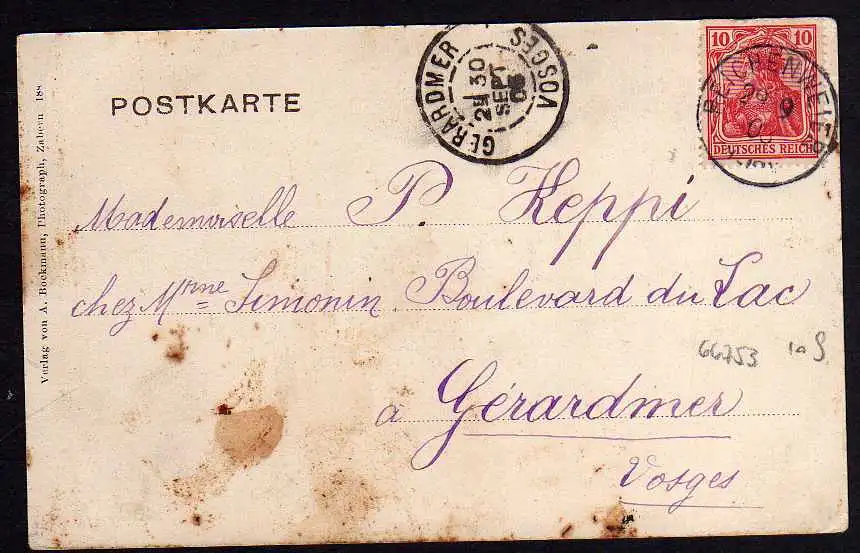 POSTKARTE
GERARDMER
VOSGES
30
SEPT
10
10
DEUTSCHES REICH
29
9
Mademoiselle P. Keppi
chez Mme Simonin Boulevard du Lac
66753
à Gérardmer
Vosges
Verlag von A. Bockmann, Photograph, Zabern 188